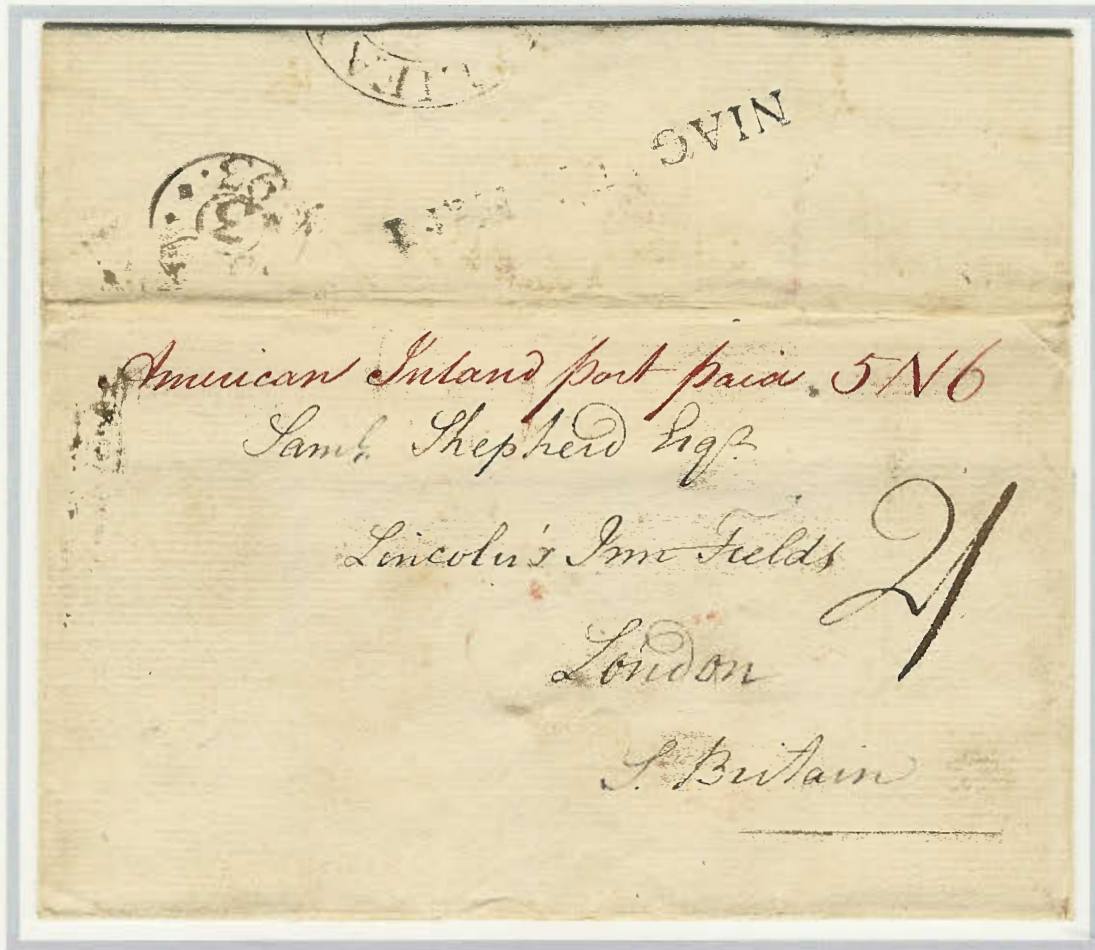 LIFA
NIAG
3
American Inland port paid 5N6
Saml. Shepherd Esqr.
Lincoln's Inn Fields
2/
London
S. Britain